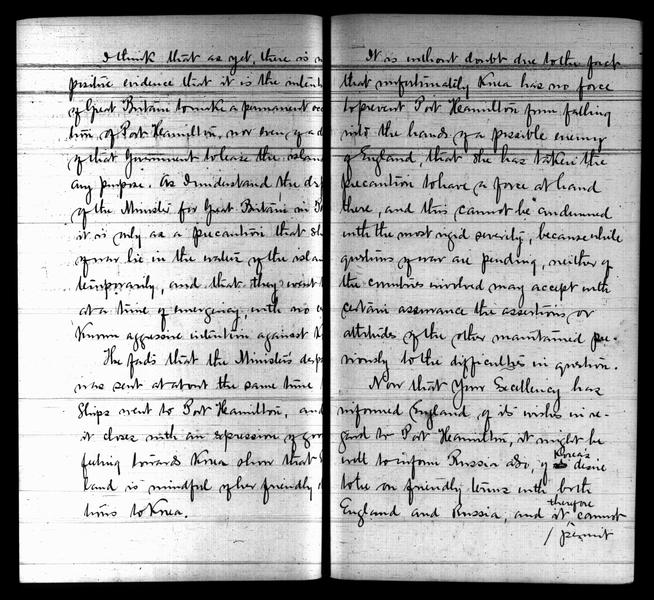 I think that as yet, there is n
positive evidence that it is the intent
of Great Britain to make a permanent occ
tion of Port Hamilton, nor even of a d
of that Government to lease the islan
any purpose. As I understand the des
of the Minister for Great Britain in
it is only as a precaution that sh
of war lie in the waters of the islan
temporarily, and that they went
at a time of emergency with no
Known aggressive intention against K
The facts that the Minister's desp
was sent at about the same time
Ships went to Port Hamilton, and
it closes with an expression of goo
feeling towards Korea show that E
land is mindful of her friendly
tions to Korea.
It is without doubt due to the fact
that unfortunately Korea has no force
to prevent Port Hamilton from falling
into the hands of a possible enemy
of England, that she has taken the
precaution to have a force at hand
there, and this cannot be condemned
with the most rigid severity, because while
questions of war are pending, neither of
the countries involved may accept with
certain assurance the assertions or
attitudes of the other maintained pre-
viously to the difficulties in question.
Now that Your Excellency has
informed England of its wishes in re-
gard to Port Hamilton, it might be
well to inform Russia also, of Korea's desire
to be on friendly terms with both
England and Russia, and it therefore cannot
/ permit